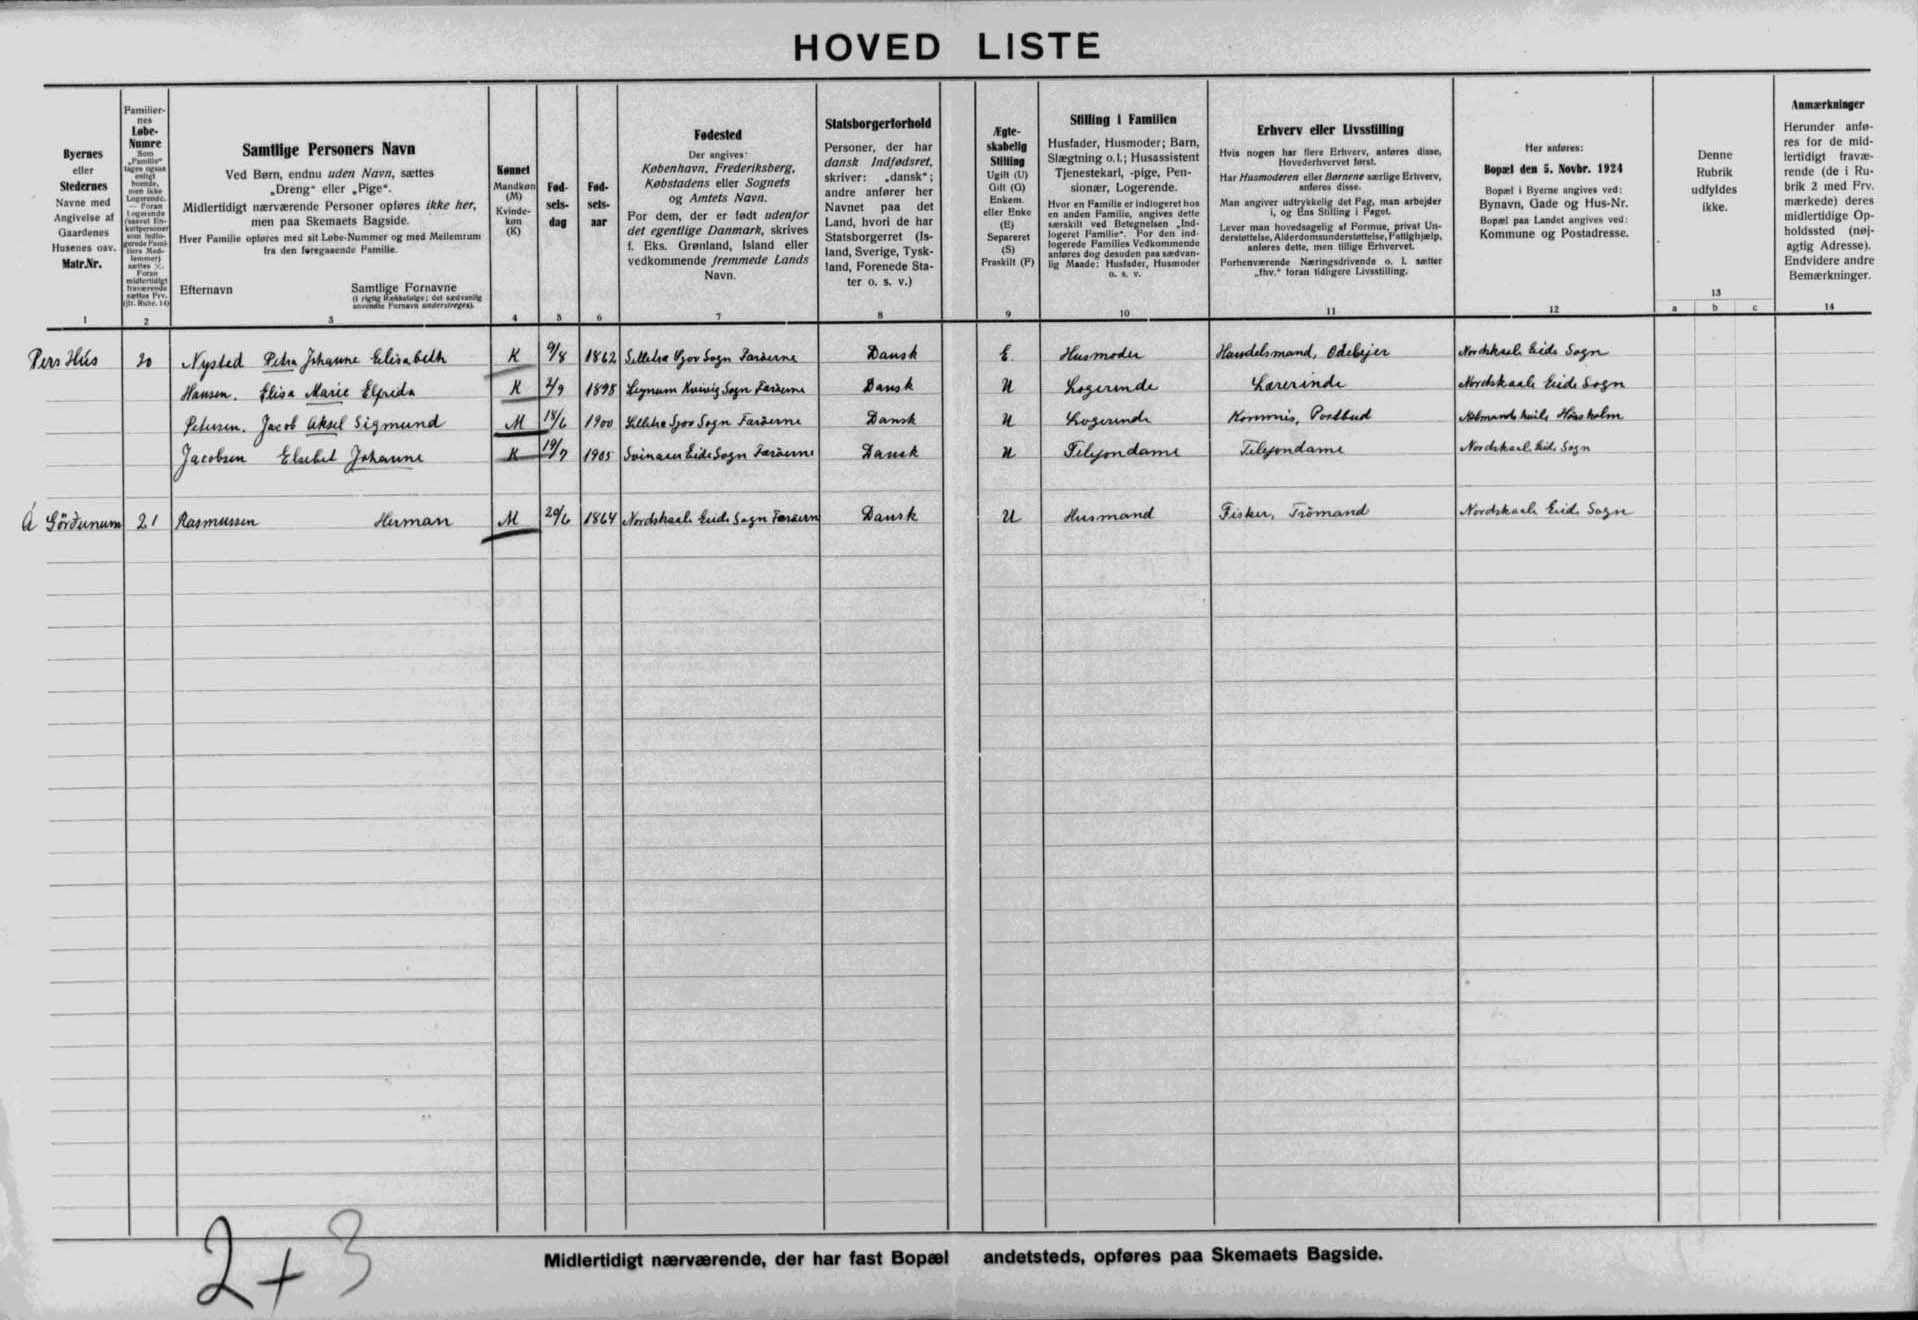 HOVED LISTE
Byernes
eller
Stedernes
Navne med
Angivelse af
Gaardenes
Husenes osv.
Matr.Nr.
1
Familier-
nes
Løbe-
Numre
Som
„Familie"
tages ogsaa
enligt
boende,
men ikke
Logerende.
— Foran
Logerende
(saavel En-
keltpersoner
som indlo-
gerede Fami-
liers Med-
lemmer)
sættes ×.
Foran
midlertidigt
fraværende
sættes Frv.
(jfr. Rubr. 14)
2
Samtlige Personers Navn
Ved Børn, endnu uden Navn, sættes
„Dreng" eller „Pige".
Midlertidigt nærværende Personer opføres ikke her,
men paa Skemaets Bagside.
Hver Familie opføres med sit Løbe-Nummer og med Mellemrum
fra den foregaaende Familie.
Efternavn Samtlige Fornavne
(i rigtig Rækkefølge; det sædvanlig
anvendte Fornavn understreges).
3
Kønnet
Mandkøn
(M)
Kvinde-
køn
(K)
4
Fød-
sels-
dag
5
Fød-
sels-
aar
6
Fødested
Der angives:
København, Frederiksberg,
Købstadens eller Sognets
og Amtets Navn.
For dem, der er født udenfor
det egentlige Danmark, skrives
f. Eks. Grønland, Island eller
vedkommende fremmede Lands
Navn.
7
Statsborgerforhold
Personer, der har
dansk Indfødsret,
skriver: „dansk";
andre anfører her
Navnet paa det
Land, hvori de har
Statsborgerret (Is-
land, Sverige, Tysk-
land, Forenede Sta-
ter o. s. v.)
8
Ægte-
skabelig
Stilling
Ugift (U)
Gift (G)
Enkem.
eller Enke
(E)
Separeret
(S)
Fraskilt (F)
9
Stilling i Familien
Husfader, Husmoder; Barn,
Slægtning o.l.; Husassistent
Tjenestekarl, -pige, Pen-
sionær, Logerende.
Hvor en Familie er indlogeret hos
en anden Familie, angives dette
særskilt ved Betegnelsen „Ind-
logeret Familie". For den ind-
logerede Families Vedkommende
anføres dog desuden paa sædvan-
lig Maade: Husfader, Husmoder
o. s. v.
10
Erhverv eller Livsstilling
Hvis nogen har flere Erhverv, anføres disse,
Hovederhvervet først.
Har Husmoderen eller Børnene særlige Erhverv,
anføres disse.
Man angiver udtrykkelig det Fag, man arbejder
i, og Ens Stilling i Faget.
Lever man hovedsagelig af Formue, privat Un-
derstøttelse, Alderdomsunderstøttelse, Fattighjælp,
anføres dette, men tillige Erhvervet.
Forhenværende Næringsdrivende o. l. sætter
„fhv." foran tidligere Livsstilling.
11
Her anføres:
Bopæl den 5. Novbr. 1924
Bopæl i Byerne angives ved:
Bynavn, Gade og Hus-Nr.
Bopæl paa Landet angives ved:
Kommune og Postadresse.
12
Denne
Rubrik
udfyldes
ikke.
13
a b c
Anmærkninger
Herunder anfø-
res for de mid-
lertidigt fravæ-
rende (de i Ru-
brik 2 med Frv.
mærkede) deres
midlertidige Op-
holdssted (nøj-
agtig Adresse).
Endvidere andre
Bemærkninger.
14
Pers Hús 20 Nysted Petra Johanne Elisabeth K 9/8 1862 Sogn Færøerne Dansk E. Husmoder Handelsmand, Nordskaale Eide Sogn
Hansen. Elisa Marie Elfrida K 2/9 1898 Sogn Færøerne Dansk U Logerende Lærerinde Nordskaale Eide Sogn
Petersen. Jacob Aksel Sigmund M 18/6 1900 Sogn Færøerne Dansk U Logerende Kommis, Postbud Hørsholm
Jacobsen Elsebet Johanne K 19/7 1905 Svinaaer Eide Sogn Færøerne Dansk U Telefondame Telefondame Nordskaale Eide Sogn
Á Górðunum 21 Rasmussen Herman M 29/6 1864 Nordskaale Eide Sogn Færøerne Dansk U Husmand Fisker, Nordskaale Eide Sogn
2+3
Midlertidigt nærværende, der har fast Bopæl andetsteds, opføres paa Skemaets Bagside.